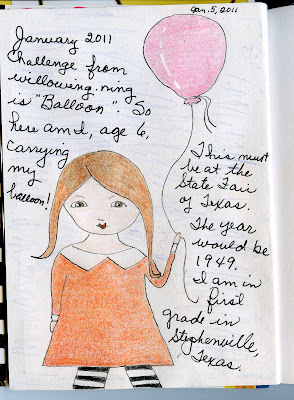 Jan. 5, 2011
January 2011
Challenge from
willowing.ning
is "Balloon". So
here am I, age 6,
carrying
my
balloon!
This must
be at the
State Fair
of Texas.
The year
would be
1949.
I am in
first
grade in
Stephenville,
Texas.